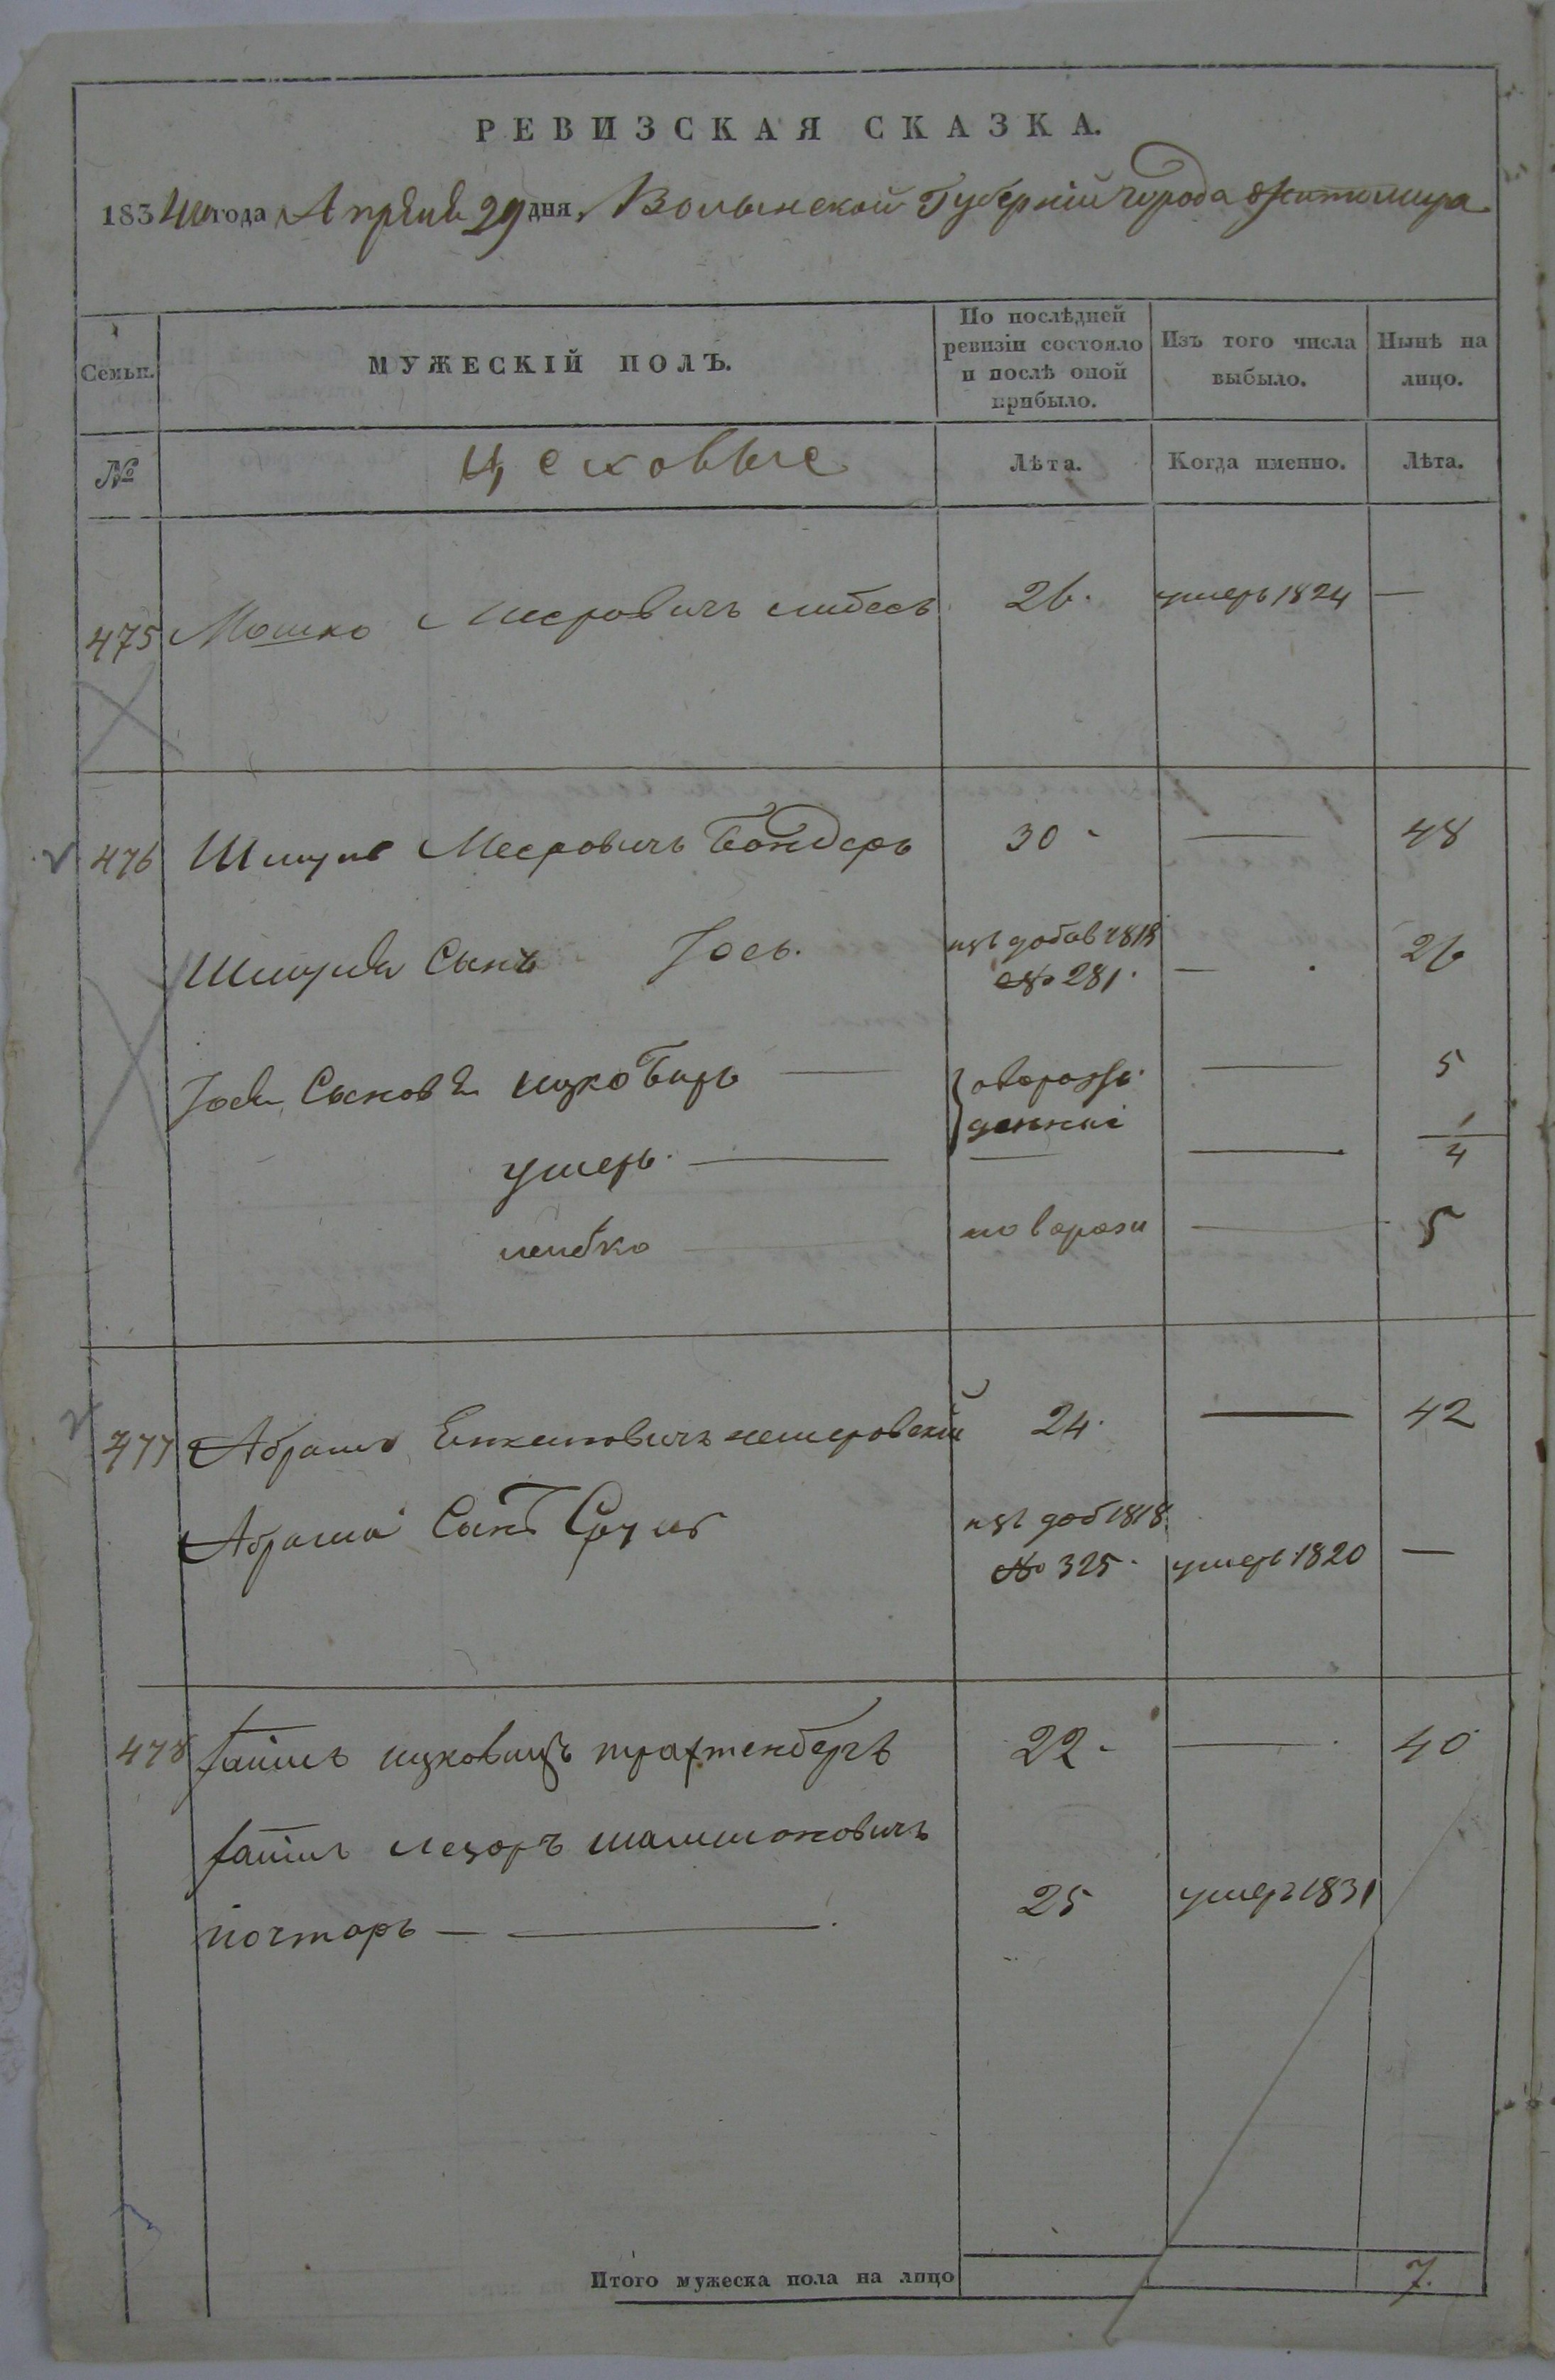 РЕВИЗСКАЯ СКАЗКА.
1834го года Апреля 29 дня, Волынской Губерніи города Житомира
Семьи.
МУЖЕСКІЙ ПОЛЪ.
По послѣдней
ревизіи состояло
и послѣ оной
прибыло.
Изъ того числа
выбыло.
Нынѣ на
лицо.
№
Цеховые
Лѣта.
Когда именно.
Лѣта.
475 Мошко Мееровичъ 26. умеръ 1824 —
476 Шмуль Мееровичъ Бондеръ 30 — 48
Шмуля Сынъ Іось. добав 1818
№ 281. — 26
Іося Сыновья ицко Беръ — — 5
умеръ. — — — 1/4
лейбко — новорож — 5
477 Абрамъ немеровскій 24. — 42
Абрама Сынъ Сруль доб 1818
№ 325. умеръ 1820 —
478 ицковичъ трахтенбергъ 22 — 40
лезоръ шамшоновичъ
почтаръ — — 25 умеръ 1831
Итого мужеска пола на лицо 7.